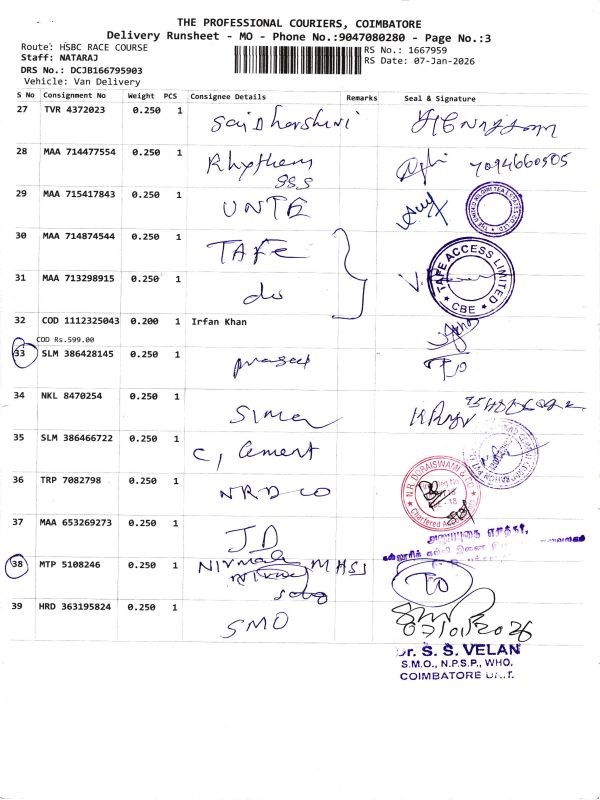 THE PROFESSIONAL COURIERS, COIMBATORE
Delivery Runsheet - MO - Phone No.:9047080280 - Page No.:3
Route: HSBC RACE COURSE
RS No.: 1667959
Staff: NATARAJ
RS Date: 07-Jan-2026
DRS No.: DCJB166795903
Vehicle: Van Delivery
S No Consignment No Weight PCS Consignee Details Remarks Seal & Signature
27 TVR 4372023 0.250 1 Sai Dharshini
28 MAA 714477554 0.250 1 Rhythem 7094660505
SSS
29 MAA 715417843 0.250 1 UNTE
30 MAA 714874544 0.250 1 TAFE
TAFE ACCESS LIMITED
CBE
31 MAA 713298915 0.250 1 do
32 COD 1112325043 0.200 1 Irfan Khan
COD Rs.599.00
33 SLM 386428145 0.250 1 TO
34 NKL 8470254 0.250 1
35 SLM 386466722 0.250 1 C, Cement
36 TRP 7082798 0.250 1 NRD CO
N.R. DORAISWAMI & CO.
Chartered
37 MAA 653269273 0.250 1 JD
38 MTP 5108246 0.250 1 Nirmala MHSS TO
39 HRD 363195824 0.250 1 SMO
07/01/2026
Dr. S. S. VELAN
S.M.O., N.P.S.P., WHO.
COIMBATORE UNIT.